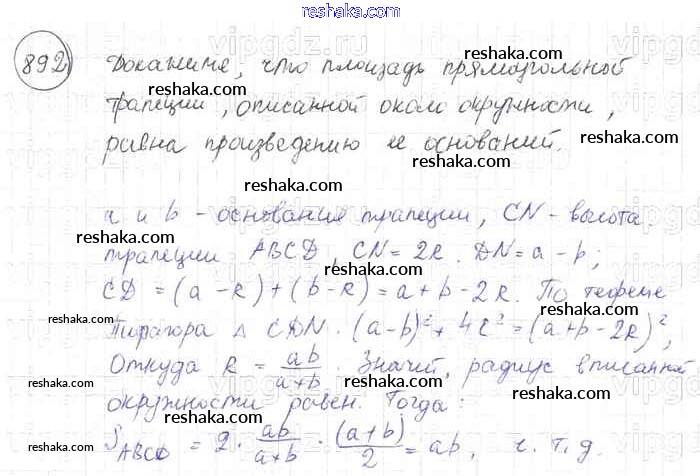 reshaka.com
892.
Докажите, что площадь прямоугольной
reshaka.com
трапеции, описанной около окружности,
reshaka.com
равна произведению ее оснований.
reshaka.com
a и b - основания трапеции, CN - высота
reshaka.com
трапеции ABCD, CN = 2R. DN = a - b;
reshaka.com
CD = (a - R) + (b - R) = a + b - 2R. По теореме
reshaka.com
Пифагора Δ CDN. (a-b)² + 4r² = (a+b-2R)²,
reshaka.com
Откуда R = ab/(a+b). Значит, радиус вписанной
reshaka.com
окружности равен. Тогда:
reshaka.com
S_ABCD = 2 · ab/(a+b) · (a+b)/2 = ab, ч.т.д.
reshaka.com